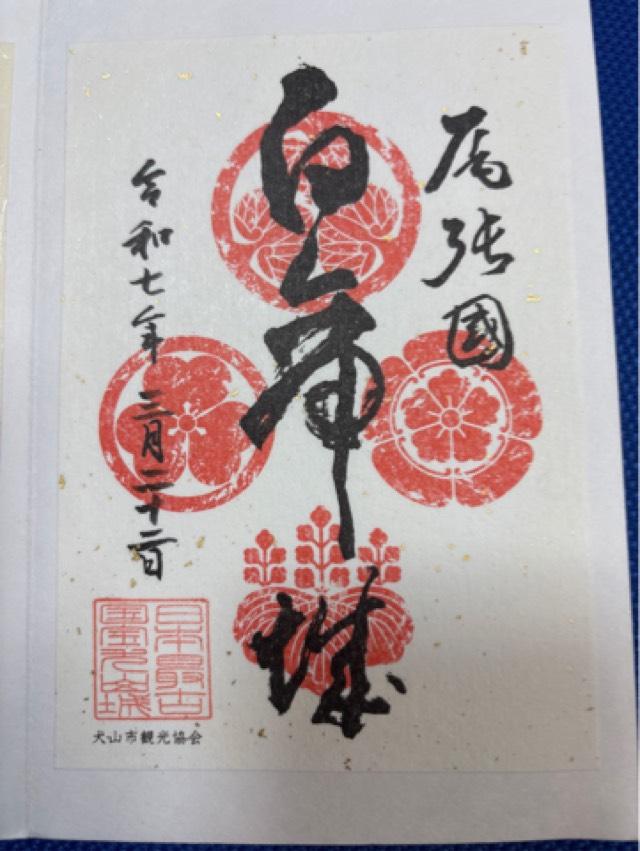 尾張國
白帝城
令和七年 三月二十二日
日本最古
國宝犬山城
犬山市観光協会